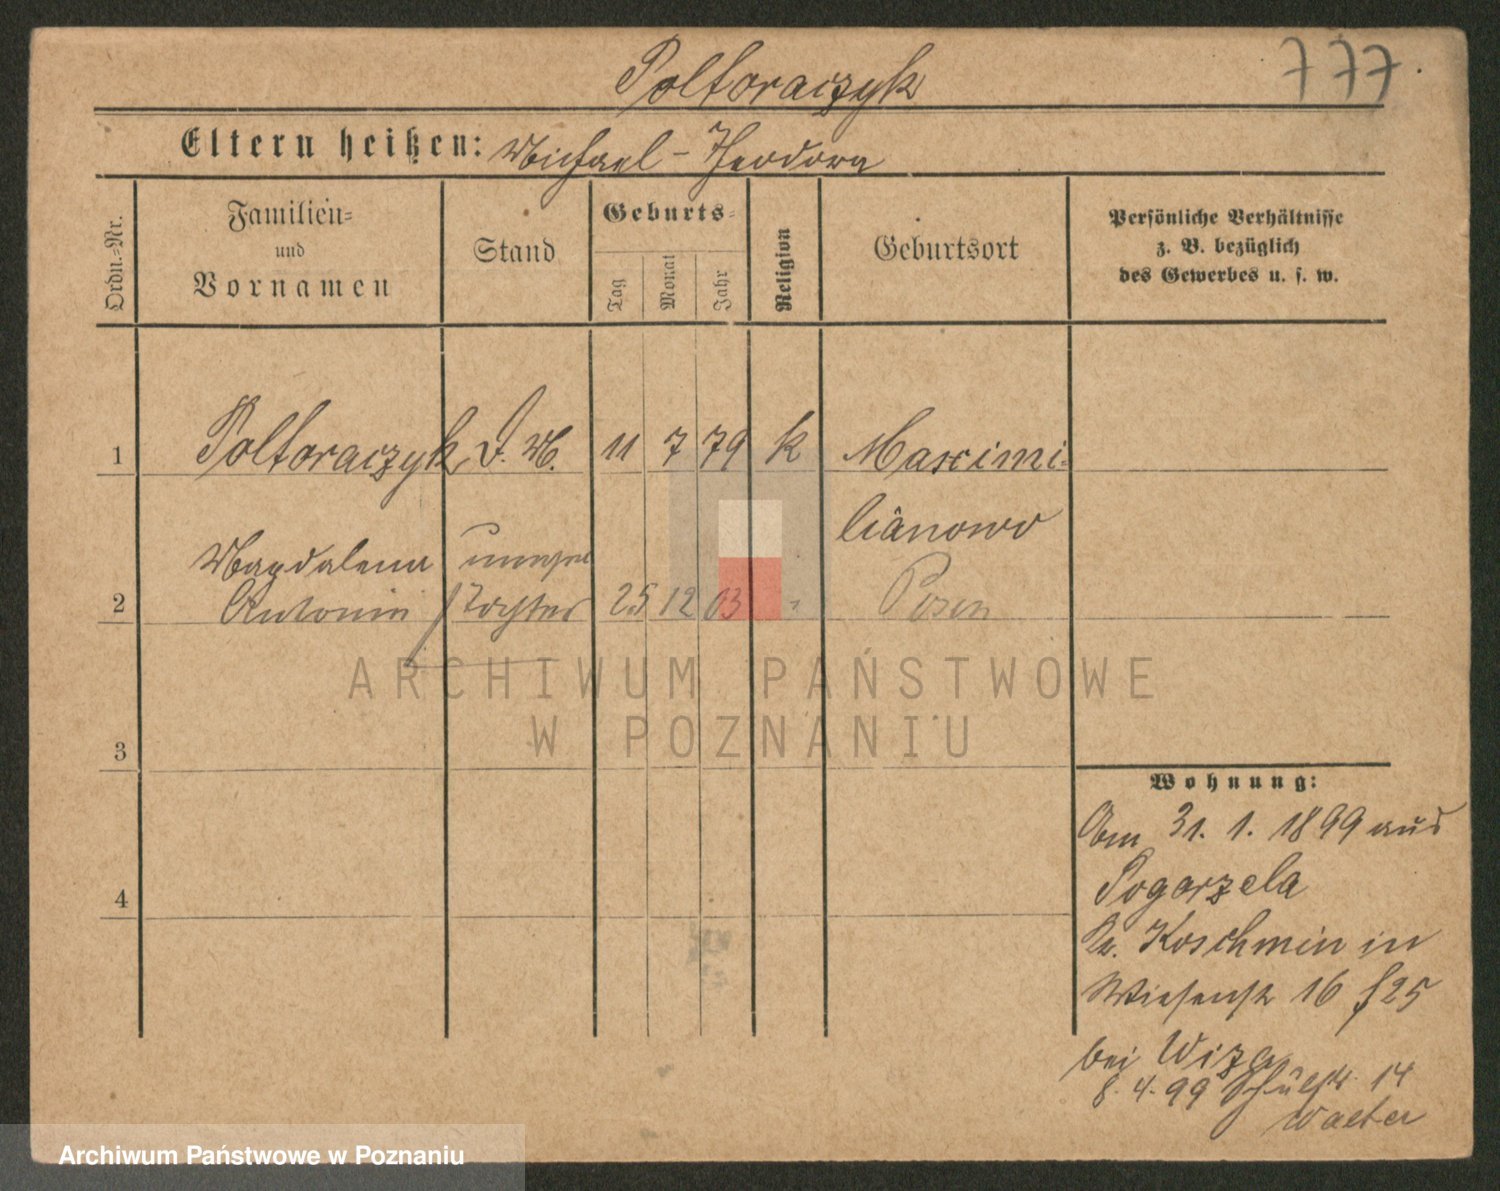 777.
Poltoraczyk
Eltern heißen: Michael - Theodora
Ordn.=Nr.
Familien=
und
Vornamen
Stand
Geburts=
Tag
Monat
Jahr
Religion
Geburtsort
Persönliche Verhältnisse
z. B. bezüglich
des Gewerbes u. s. w.
1 Poltoraczyk D. M. 11 7 79 k Maximi=
lianowo
Magdalena
2 Antonie Tochter 25 12 03 Posen
3
4
Wohnung:
Am 31. 1. 1899 aus
Pogorzela
Kr. Koschmin in
Wiesenstr 16 f 25
bei Wiza
8. 4. 99 Schulstr. 14
Walter
ARCHIWUM PAŃSTWOWE
W POZNANIU
Archiwum Państwowe w Poznaniu